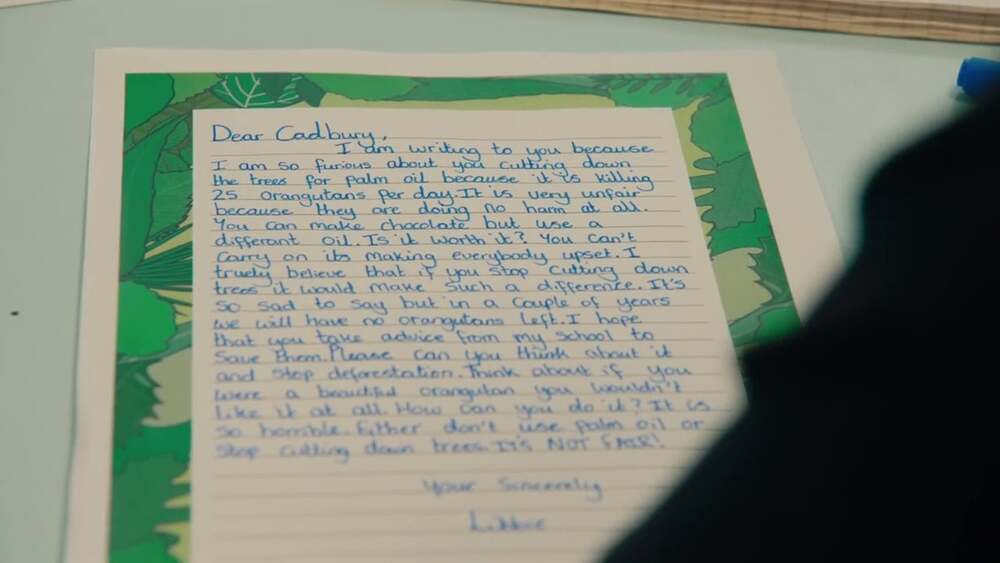 Dear Cadbury,
I am writing to you because
I am so furious about you cutting down
the trees for palm oil because it is killing
25 orangutans per day. It is very unfair
because they are doing no harm at all.
You can make chocolate but use a
differant oil. Is it worth it? You can't
carry on its making everybody upset. I
truely believe that if you stop cutting down
trees it would make such a difference. It's
so sad to say but in a couple of years
we will have no orangutans left. I hope
that you take advice from my school to
save them. Please can you think about it
and stop deforestation. Think about if you
were a beautiful orangutan you wouldn't
like it at all. How can you do it? It is
so horrible. Either don't use palm oil or
stop cutting down trees. It's NOT FAIR!
Your Sincerely
Libbie